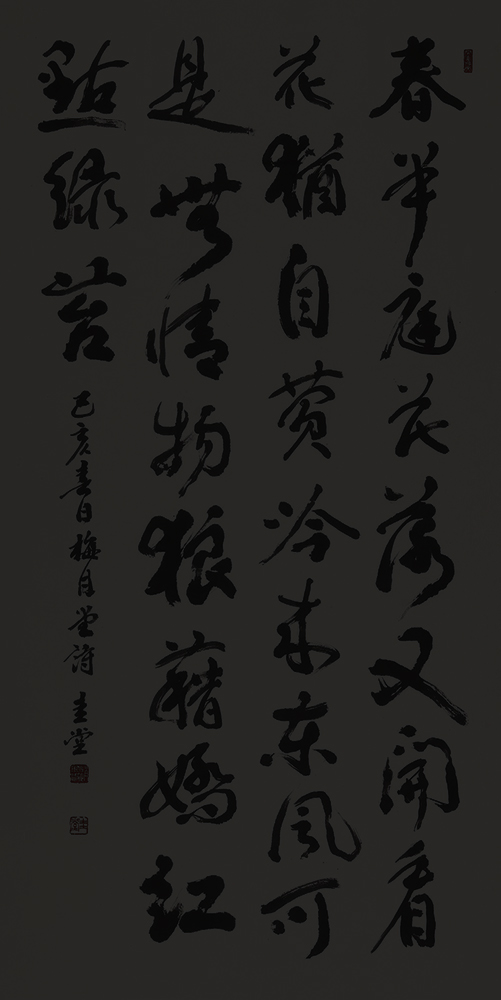 春半庭花落又開看
花猶自費吟來東風可
是無情物狼藉嬌紅
點綠苔
己亥春日梅月堂詩 圭堂